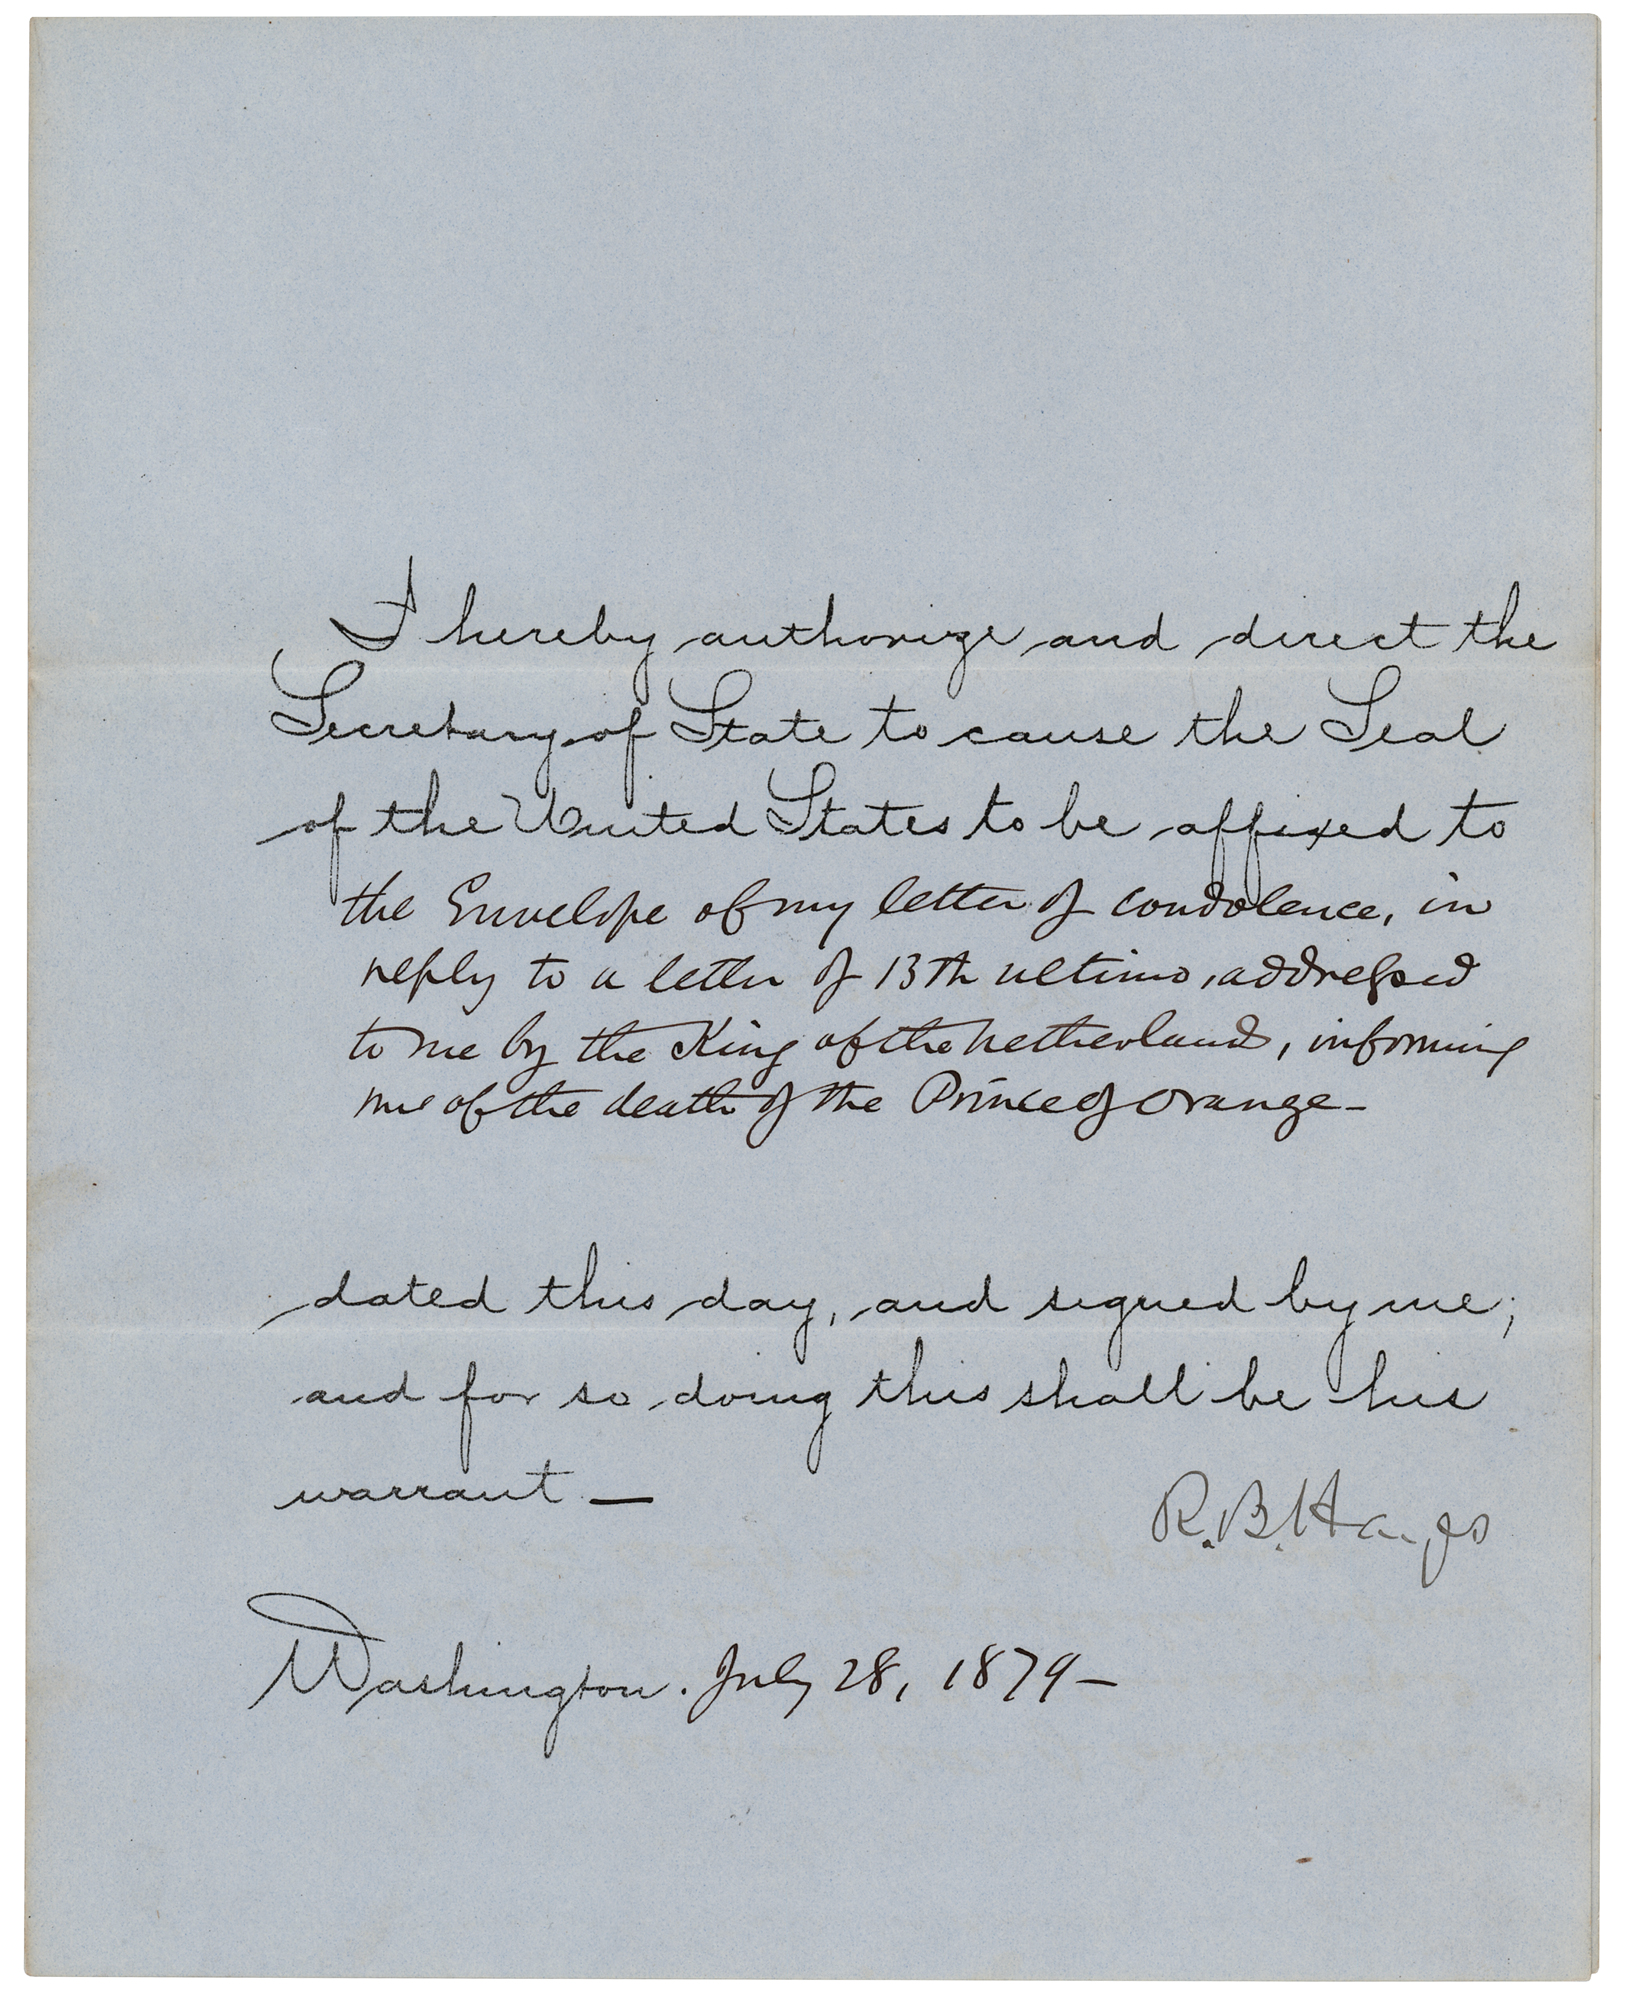 I hereby authorize and direct the
Secretary of State to cause the Seal
of the United States to be affixed to
the Envelope of my letter of condolence, in
reply to a letter of 13th ultimo, addressed
to me by the King of the Netherlands, informing
me of the death of the Prince of Orange -
dated this day, and signed by me;
and for so doing this shall be his
warrant —
R. B. Hayes
Washington. July 28, 1879 -